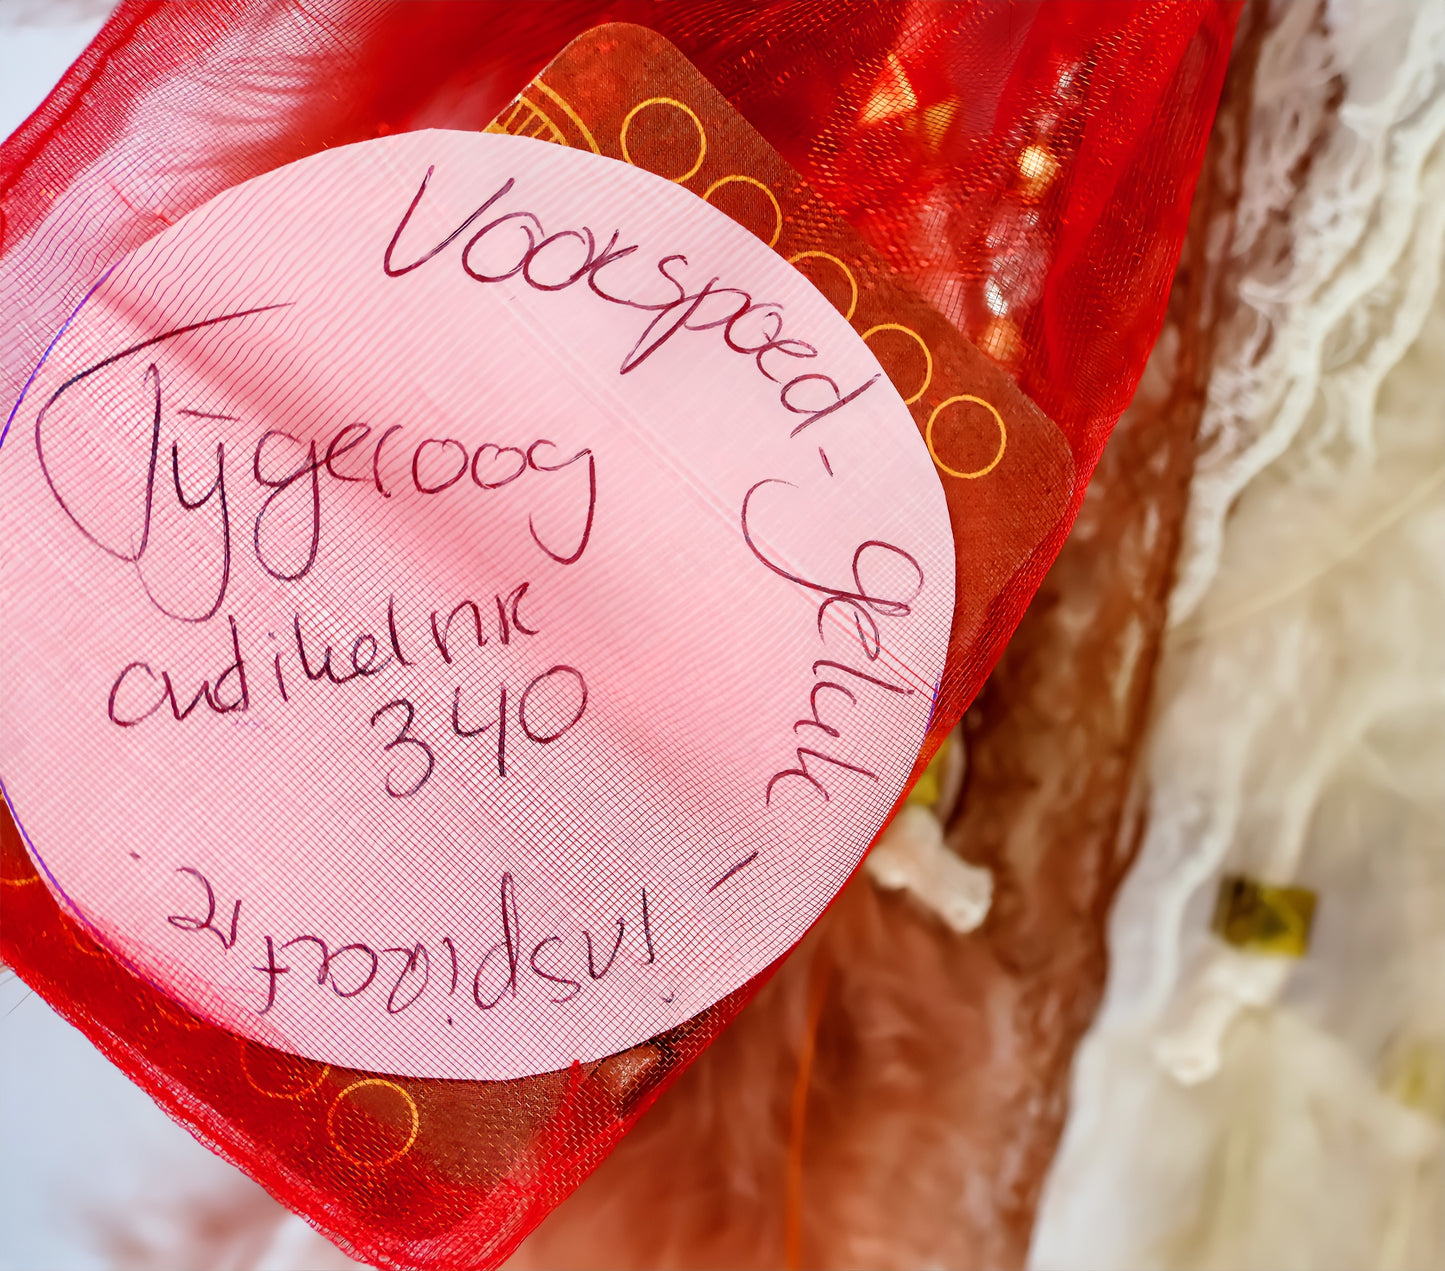 Voorspoed - geluk
- inspiratie
Tijgeroog
artikelnr
340